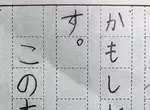 かもし
す。
この